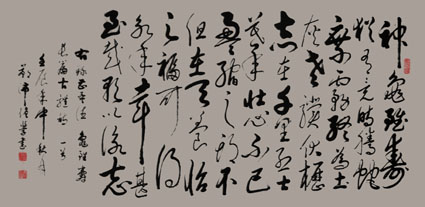 神龜雖壽
猶有竟時騰蛇
乘霧終為土
灰老驥伏櫪
志在千里烈士
暮年壯心不已
盈縮之期不
但在天養怡
之福可得
永年幸甚
至哉歌以詠志
壬辰年仲秋月